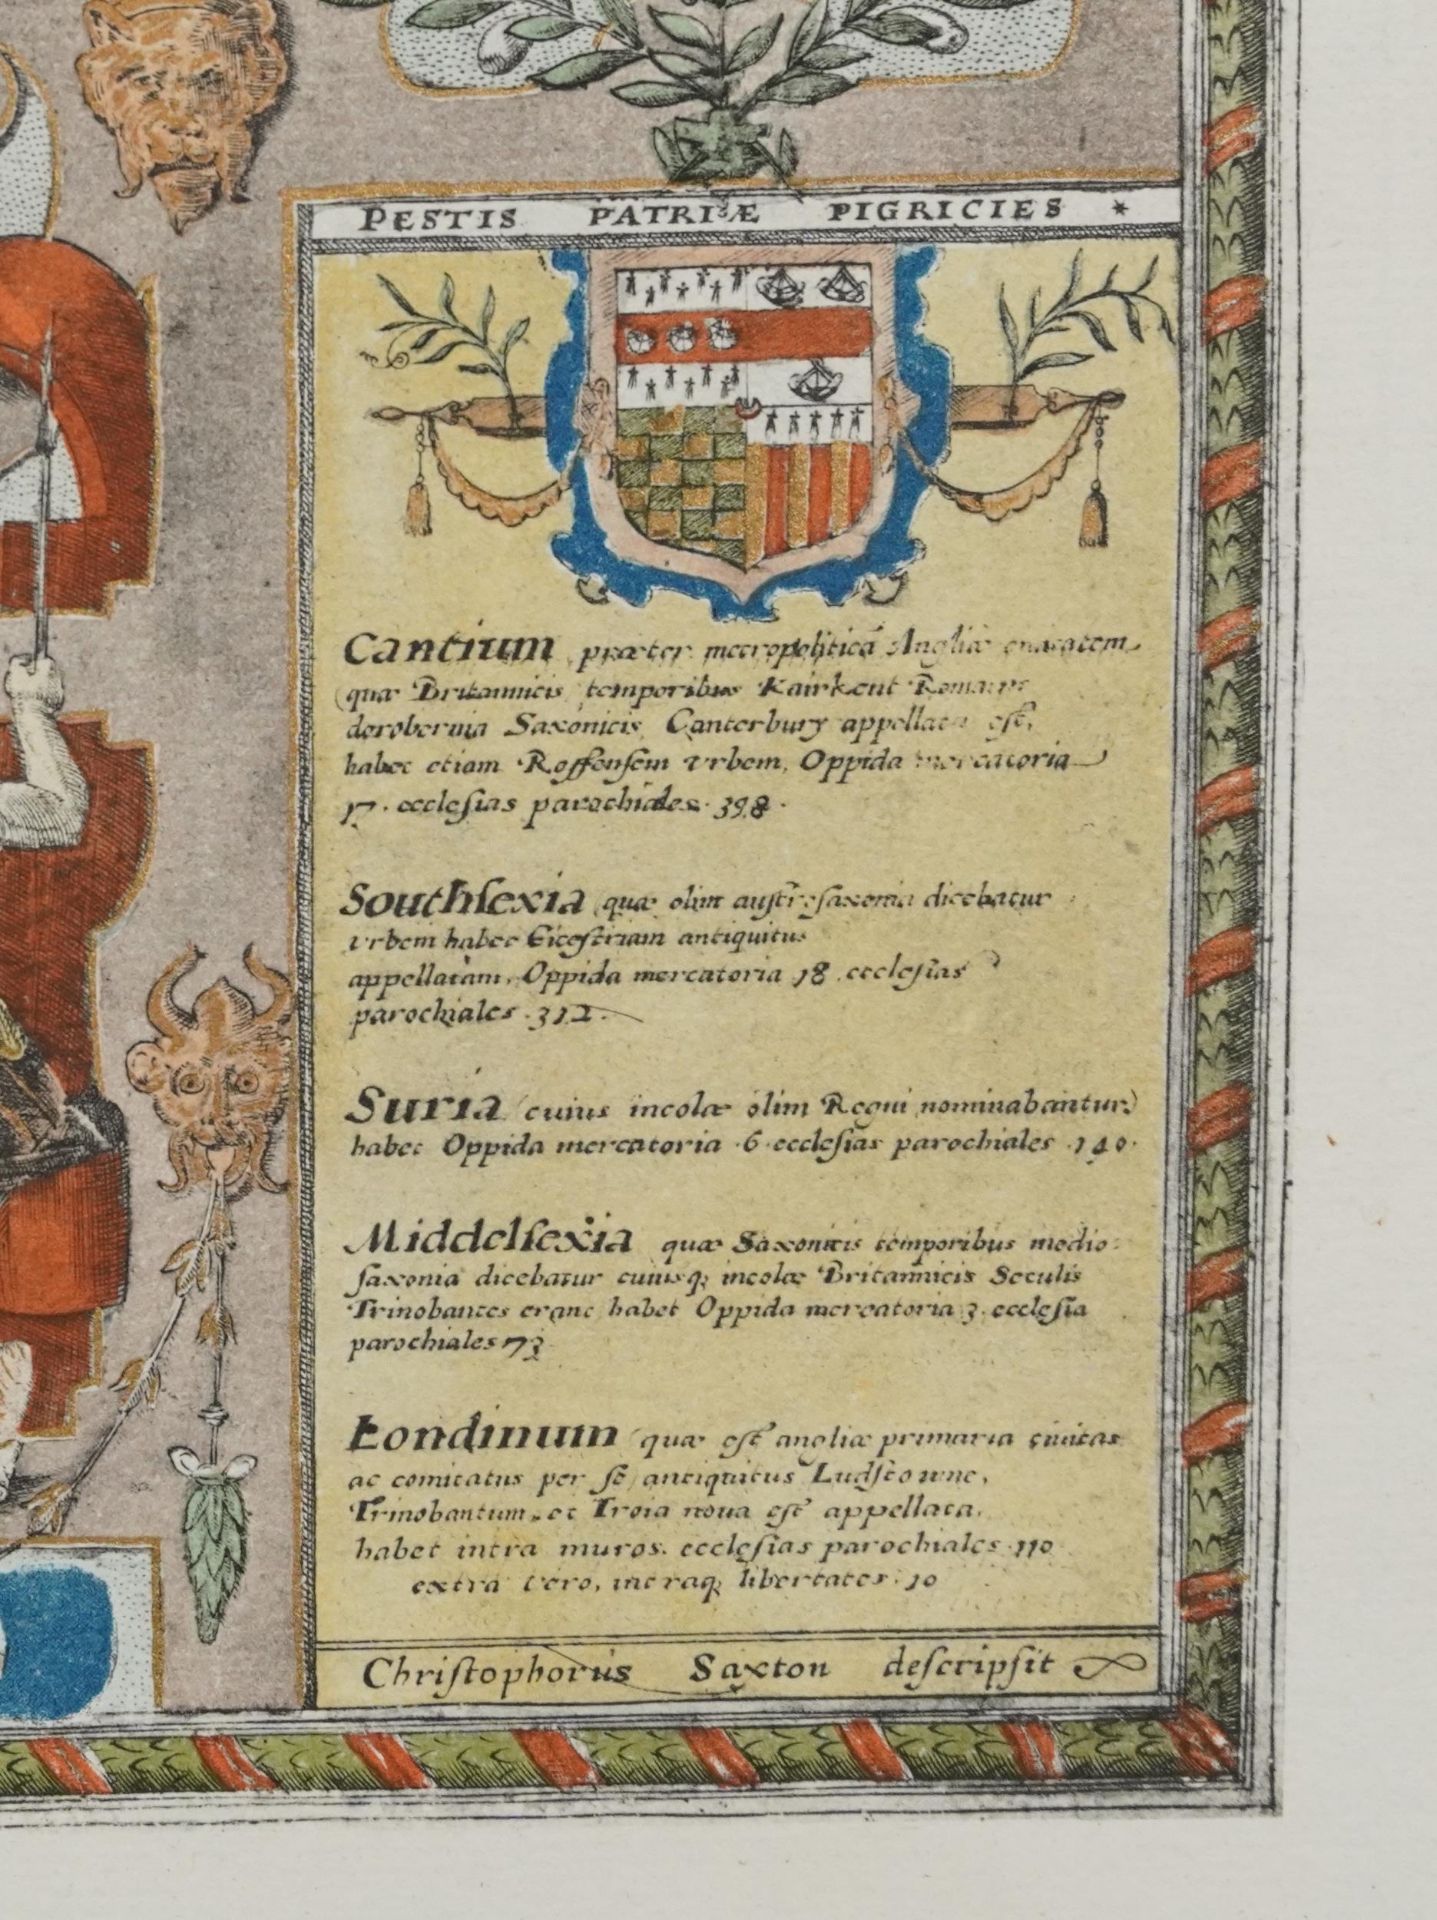 PESTIS PATRIÆ PIGRICIES *
Cantium præter metropoliticā Angliæ
(quæ Britannicis temporibus Kairkent
deroberma Saxonicis Canterbury appellata est,
habet etiam Roffensem vrbem, Oppida mercatoria
17. ecclesias parochiales. 398.
Southsexia (quæ olim austresaxonia dicebatur
vrbem habet Cicestriam antiquitus
appellatam, Oppida mercatoria 18 ecclesias
parochiales. 312.
Suria (cuius incolæ olim Regni nominabantur)
habet Oppida mercatoria 6. ecclesias parochiales. 140.
Middelsexia quæ Saxonicis temporibus medio
saxonia dicebatur cuiusq; incolæ Britannicis Seculis
Trinobantes erant habet Oppida mercatoria 3. ecclesia
parochiales 73
Londinum (quæ est angliæ primaria civitas
ac comitatus per se) antiquitus Ludstowne,
Trinobantum, et Troia noua est appellata,
habet intra muros, ecclesias parochiales. 110
extra vero, intraq; libertates. 10
Christophorus Saxton descripsit